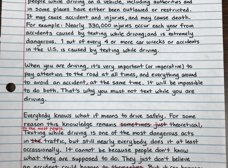 people while driving on a vehicle, including authorities and
in some places have either been outlawed or restricted.
It may cause accident and injuries, and may cause death.
For example: Nearly 330,000 injuries occur each year from
accidents caused by texting while driving; and is extremely
dangerous. 1 out of every 4 more car wrecks or accidents
in the U.S. is caused by texting while driving.
When you are driving, it's very important (or imperative) to
pay attention to the road at all times, and everything around
to avoid an accident, at the same time. It will be impossible
to do both. That's why you must not text while you are
driving.
Everybody knows what it means to drive safely. For some
reason this knowledge remains sometimes just theoretical,
to the most people.
Texting while driving is one of the most dangerous acts
in the traffic, but still nearly everybody does it at least
occasionally. It cannot be because people don't know
what they are supposed to do. They just don't believe